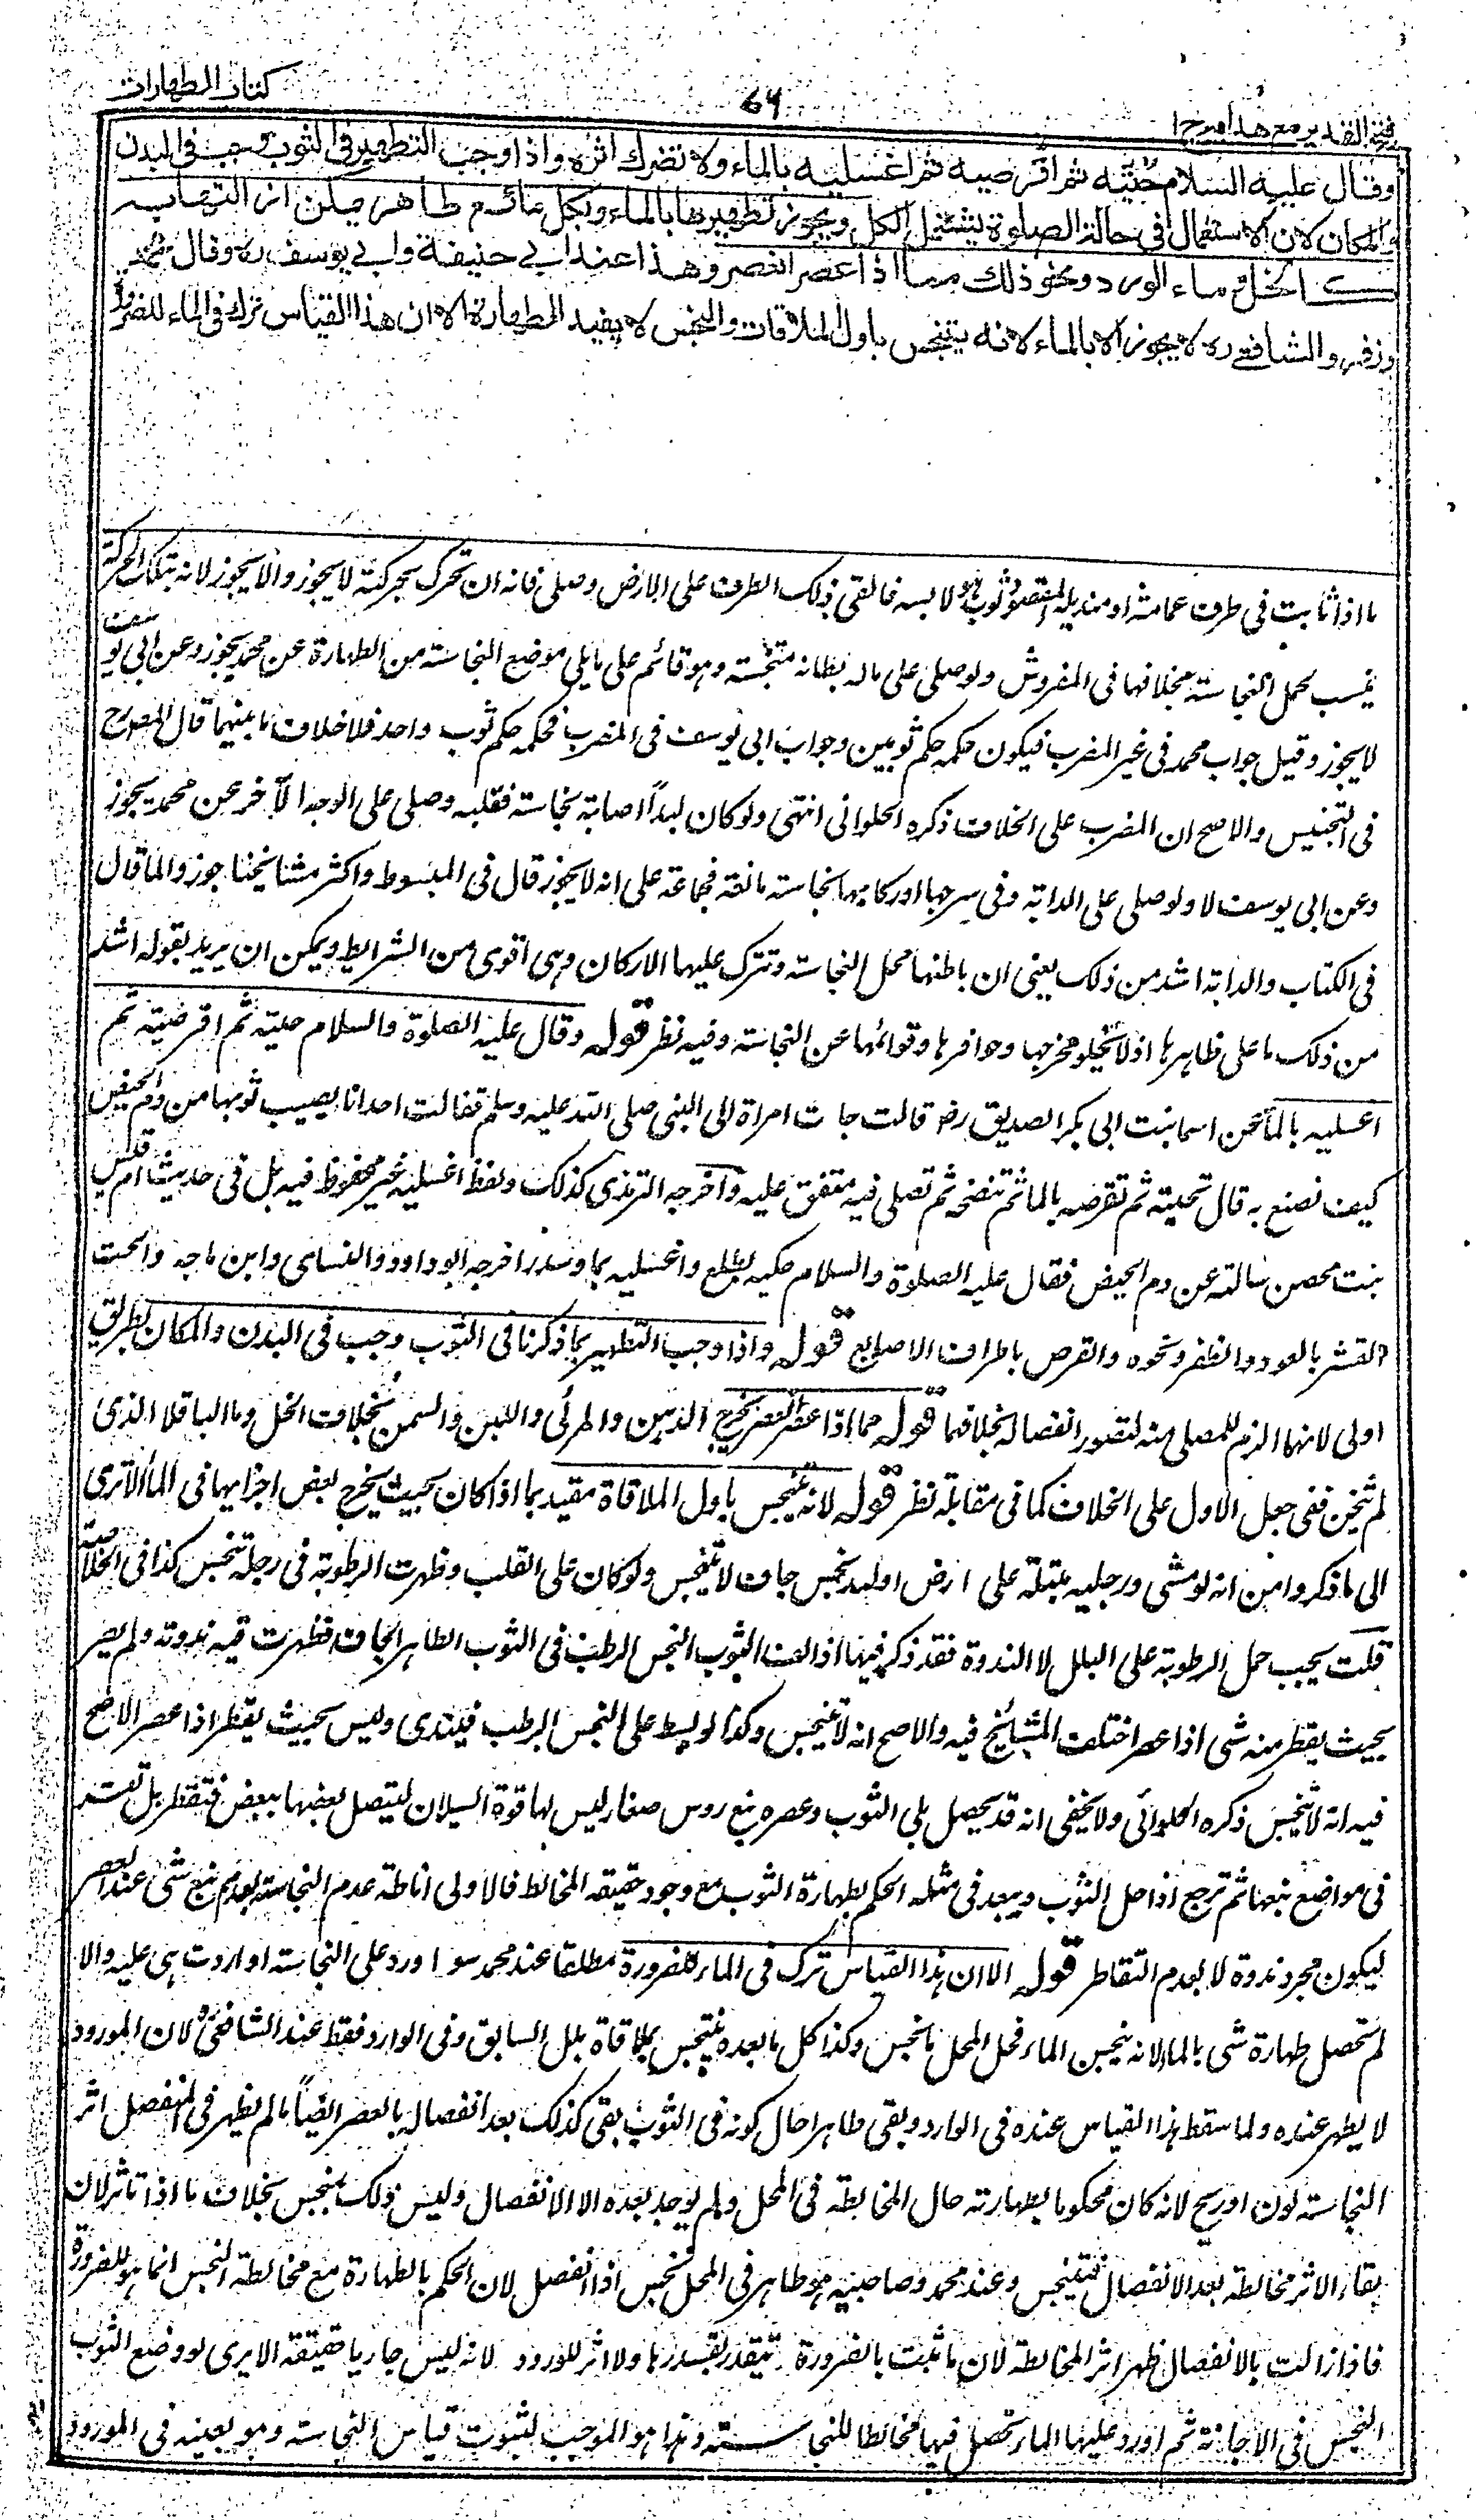 كتاب الطهارات
٧٩
فتح القدير مع هداية ج ١
وقال عليه السلام حتيه ثم اقرصيه ثم اغسليه بالماء ولا تضرك اثره واذا وجب التطهير فى الثوب وجب فى البدن
والمكان لان الاستعمال فى حالة الصلوة يشتمل الكل ويجوز تطهيرها بالماء وبكل مائع طاهر يمكن ازالتها به
كالخل وماء الورد ونحو ذلك مما اذا عصر انعصر وهذا عند ابى حنيفة وابى يوسف ره وقال محمد
وزفر والشافعى ره لا يجوز الا بالماء لانه يتنجس باول الملاقات والنجس لا يفيد الطهارة الا ان هذا القياس ترك فى الماء للضرورة
ما اذا ثابت فى طرف عمامته او منديله المقصود ثوب هو لابسه فالقى ذلك الطرف على الارض وصلى فانه ان تحرك بحركته لا يجوز والا يجوز لانه بتلك الحركة
ينسب لحمل النجاسة بخلافها فى المفروش ولو صلى على ماله بطانة متنجسة وهو قائم على ما يلى موضع النجاسة من الطهارة عن محمد يجوز وعن ابى يوسف
لا يجوز وقيل جواب محمد فى غير المضرب فيكون حكمه حكم ثوبين وجواب ابى يوسف فى المضرب فحكمه حكم ثوب واحد فلا خلاف ما بينهما قال المص رح
فى التجنيس والاصح ان المضرب على الخلاف ذكره الحلوانى انتهى ولو كان لبدا اصابته نجاسة فقلبه وصلى على الوجه الآخر عن محمد يجوز
وعن ابى يوسف لا ولو صلى على الدابة وفى سرجها او ركابها نجاسة مانعة فجماعة على انه لا يجوز قال فى المبسوط واكثر مشائخنا جوزوا لما قال
فى الكتاب والدابة اشد من ذلك يعنى ان باطنها محل النجاسة وتترك عليها الاركان وهى اقوى من الشرائط ويمكن ان يريد بقوله اشد
من ذلك ما على ظاهرها اذ لا تخلو مخرجها وحوافرها وقوائمها عن النجاسة وفيه نظر قوله وقال عليه الصلوة والسلام حتيه ثم اقرصيه ثم
اغسليه بالماء عن اسما بنت ابى بكر الصديق رض قالت جات امراة الى النبى صلى الله عليه وسلم فقالت احدانا يصيب ثوبها من دم الحيض
كيف تصنع به قال تحتيه ثم تقرصه بالماء ثم تنضحه ثم تصلى فيه متفق عليه واخرجه الترمذى كذلك ولفظ اغسليه غير محفوظ فيه بل فى حديث ام قيس
بنت محصن سالته عن دم الحيض فقال عليه الصلوة والسلام حكيه بضلع واغسليه بماء وسدر اخرجه ابو داود والنسائى وابن ماجه والحت
القشر بالعود والظفر ونحوه والقرص باطراف الاصابع قوله واذا وجب التطهير بما ذكرنا فى الثوب وجب فى البدن والمكان بطريق
اولى لانها الزم للمصلى منه لتصور انفصاله بخلافهما قوله مما اذا عصر انعصر يخرج الدهن والمرئى واللبن والسمن بخلاف الخل وما الباقلا الذى
لم يثخن ففى جعل الاول على الخلاف كما فى مقابلة نظر قوله لانه يتنجس باول الملاقاة مقيد بما اذا كان بحيث يخرج بعض اجزائها فى الماء الا ترى
الى ما ذكروا من انه لو مشى ورجليه مبتلة على ارض او لبد نجس جاف لا يتنجس ولو كان على القلب وظهرت الرطوبة فى رجله تنجس كذا فى الخلاصة
قلت يجب حمل الرطوبة على البلل لا الندوة فقد ذكر فيها اذا لف الثوب النجس الرطب فى الثوب الطاهر الجاف فظهرت فيه ندوته ولم يصر
بحيث يقطر منه شى اذا عصر اختلف المشائخ فيه والاصح انه لا يتنجس وكذا لو بسط على النجس الرطب فيتندى وليس بحيث يقطر اذا عصر الاصح
فيه انه لا يتنجس ذكره الحلوائى ولا يخفى انه قد يحصل بلى الثوب وعصره نبع روس صغار ليس لها قوة السيلان ليتصل بعضها ببعض فتقطر بل تقر
فى مواضع نبعها ثم ترجع اذا حل الثوب ويبعد فى مثله الحكم بطهارة الثوب مع وجود حقيقة المخالط فالاولى اناطة عدم النجاسة بعدم نبع شى عند العصر
ليكون مجرد ندوة لا بعدم التقاطر قوله الا ان هذا القياس ترك فى الماء للضرورة مطلقا عند محمد سوا ورد على النجاسة او اوردت هى عليه والا
لم تحصل طهارة شى بالماء لانه ينجس الماء فحل المحل نا نجس وكذا كل ما بعده يتنجس بملاقاة بلل السابق وفى الوارد فقط عند الشافعى لان المورود
لا يطهر عنده ولما سقط هذا القياس عنده فى الوارد وبقى طاهرا حال كونه فى الثوب بقى كذلك بعد انفصاله بالعصر ايضا ما لم يظهر فى المنفصل اثر
النجاسة لون او ريح لانه كان محكوما بطهارته حال المخالطة فى المحل ولم يوجد بعده الا الانفصال وليس ذلك بمنجس بخلاف ما اذا تاثر لان
بقاء الاثر مخالطة بعد الانفصال فتنجس وعند محمد وصاحبيه هو طاهر فى المحل نجس اذا انفصل لان الحكم بالطهارة مع مخالطة النجس انما هو للضرورة
فاذا زالت بالانفصال ظهر اثر المخالطة لان ما ثبت بالضرورة يتقدر بقدرها ولا اثر للورود لانه ليس جاريا حقيقة الا يرى لو وضع الثوب
النجس فى الاجانة ثم اورد عليها الماء تحصل فيها مخالطا للنجاسة وهذا هو الموجب لثبوت قياس النجاسة وهو بعينه فى المورود